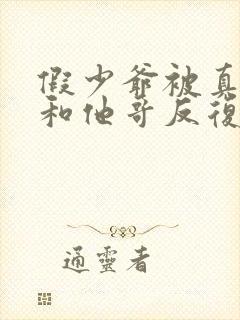 假少爺被真
和他哥反復
通靈者